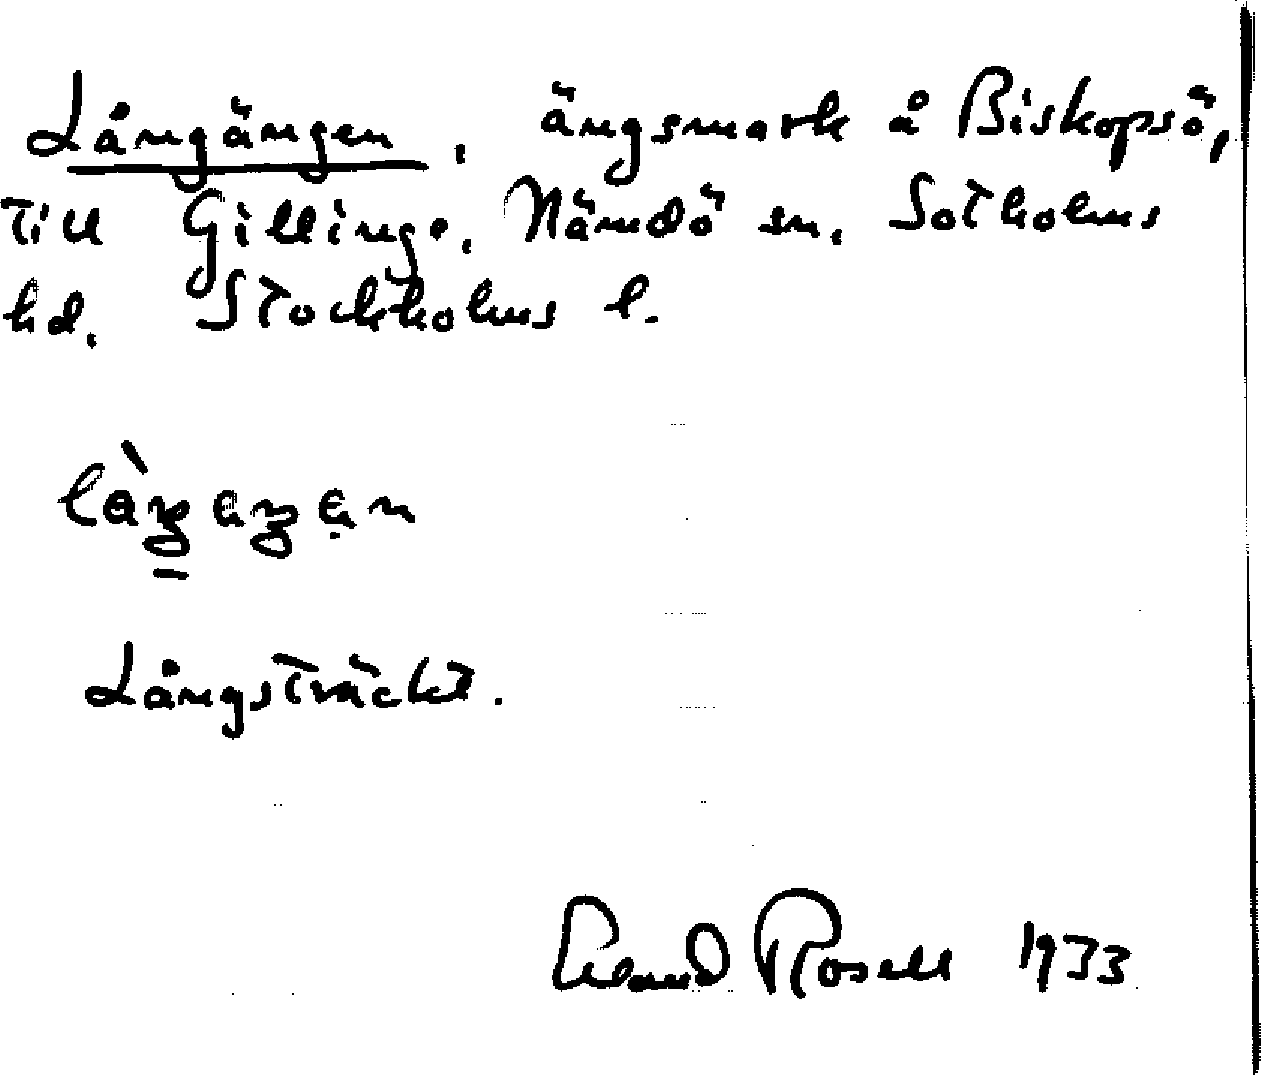 Långängen, ängsmark å Biskopsö,
till Gillinge, Nämdö sn, Sotholms
hd. Stockholms l.
Långsträckt.
Erland Rosell 1933